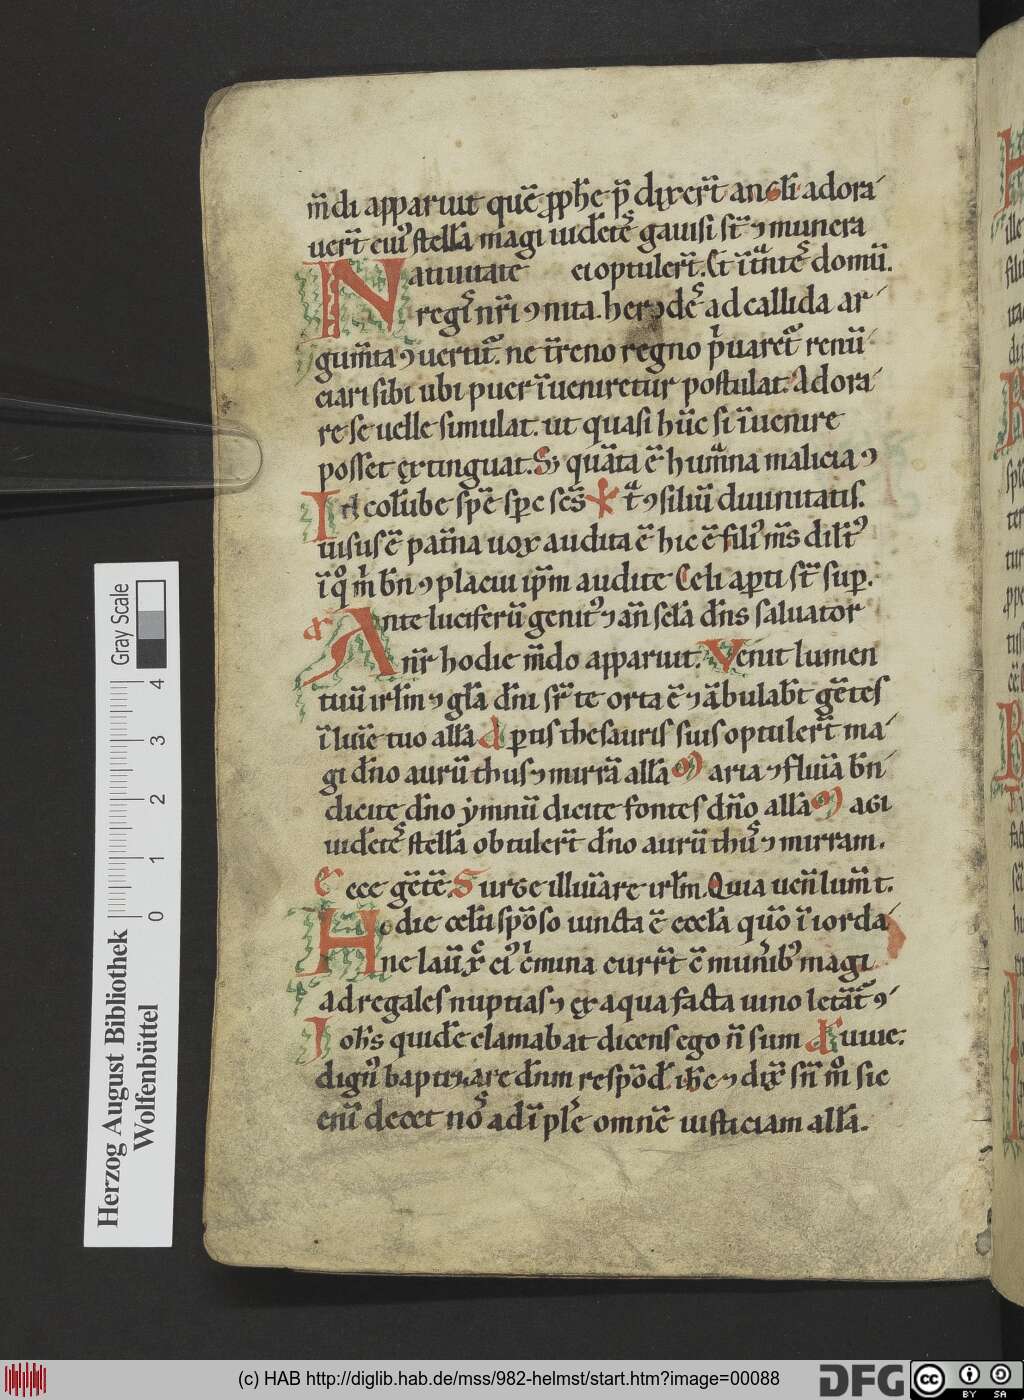 m̄di apparuit quē ꝓph̄e p̄ dixer̄t angl̄i adora
uer̄t eiuˀ stellā magi uid̄etē gauisi st̄ ⁊ munera
Natiuitate ei optuler̄t. Et ītᷓntē domū.
regē nr̄i ⁊ nita. herodē ad callida ar
gum̄ta ⁊ uertit᷑. ne t̄reno regno p̄uaret᷑ renū
ciari sibi ubi puer īueniretur postulat. Adora
re se uelle simulat. ut quasi hūc si īuenire
posset extinguat. S; quāta ē humāna malicia ⁊
In colūbe spē spc scs̄ tᷓ ⁊ siliū diuinitatis.
uisus ē pat̄na uox audita ē hic ē filiˀ m̄s dil̄tˀ
ī qͦ m̄ bn̄ ⁊placui ip̄m audite Celi aꝑti st̄ suꝑ.
Ante luciferū genitˀ ⁊ an̄ scl̄a dn̄s saluator
nr̄ hodie m̄do apparuit. Venit lumen
tuū irl̄m ⁊ gl̄a dn̄i sr̄ te orta ē ⁊ ābulab̄t gētes
ī luīe tuo all̄a Aꝑtis thesauris suis optuler̄t ma
gi dn̄o aurū thus ⁊ mirrā all̄a Maria ⁊ fluīa bn̄
dicite dn̄o ẏmnū dicite fontes dn̄o all̄a Magi
uid̄etē stellā obtuler̄t dn̄o aurū thuˀ ⁊ mirram.
Ecce gētē. Surge illuīare irl̄m. Quia uen̄ lum̄ t.
Hodie celīi spōso iuncta ē eccl̄a quō ī iorda
ne lauīt xp̄c eiˀ cͥmina curr̄t cē munibˀ magi
ad regales nuptias ⁊ ex aqua facta uino letāt᷑ ⁊
Ioh̄s quidē clamabat dicens ego n̄ sum d uuie:
dignˀ baptizare dn̄m respōd̄ ih̄c ⁊ dix̄ sn̄ mͦ sic
enī decet noˀ ad īplē omnē iusticiam all̄a.
Gray Scale
4
3
2
1
0
Herzog August Bibliothek
Wolfenbüttel
(c) HAB http://diglib.hab.de/mss/982-helmst/start.htm?image=00088
DFG
CC BY SA